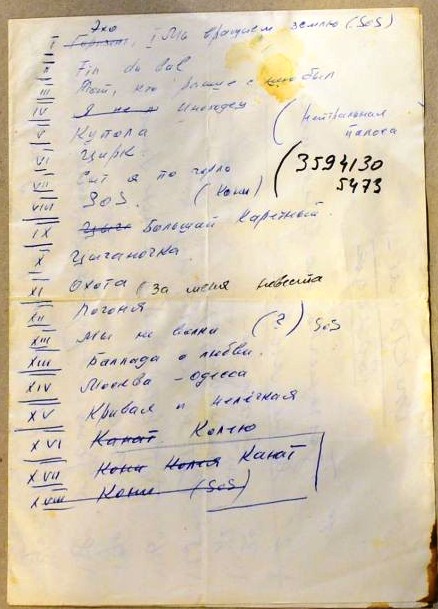 Эхо
I Горизонт, I Мы вращаем землю (SOS)
II Fin du bal
III Тот, кто раньше с нею был
IV Я не л Иноходец
(Нейтральная
полоса
V Купола
VI Цирк.
VII Сыт я по горло
(3594130
5473
VIII SOS. (Кони)
IX Цыга Большой Каретный.
X Цыганочка.
XI Охота (За меня невеста
XII Погоня
XIII Мы не волки (?) SOS
XIII Баллада о любви.
XIV Москва - Одесса
XV Кривая и нелёгкая
XVI Канат Колею
XVII Кони Колея Канат
XVIII Кони. (SOS)